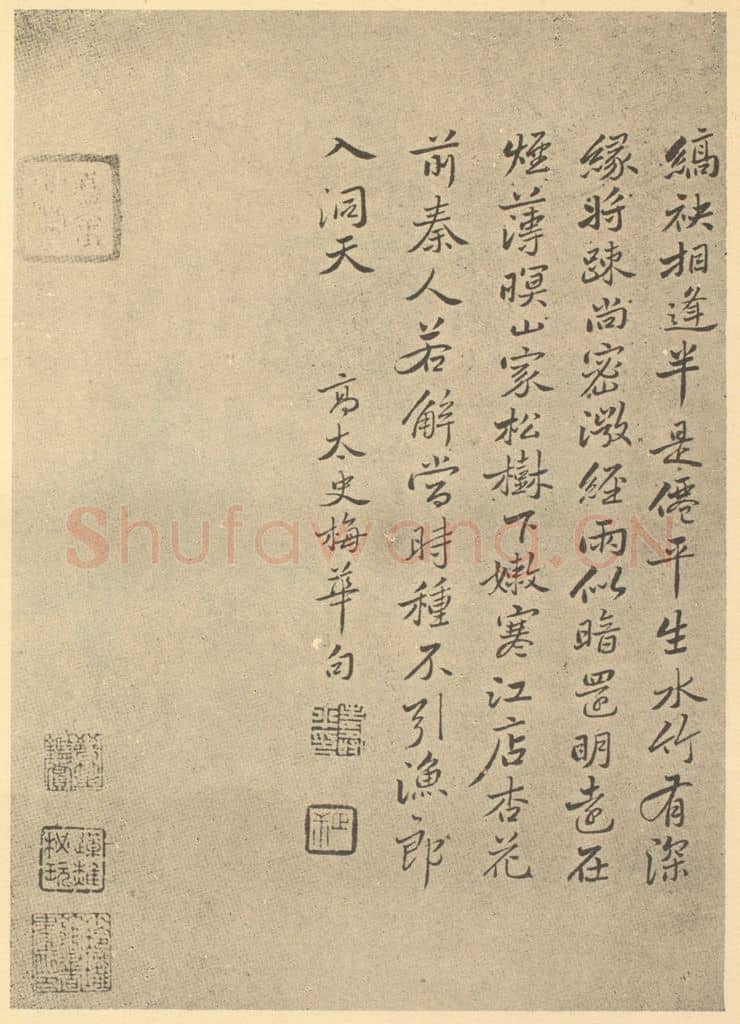 縞袂相逢半是僊平生水竹有深
緣將疎尚密澂經雨似暗還明遠在
煙薄暝山家松樹下嫩寒江店杏花
前秦人若解當時種不引漁郎
入洞天
高太史梅華句
Shufawang.CN